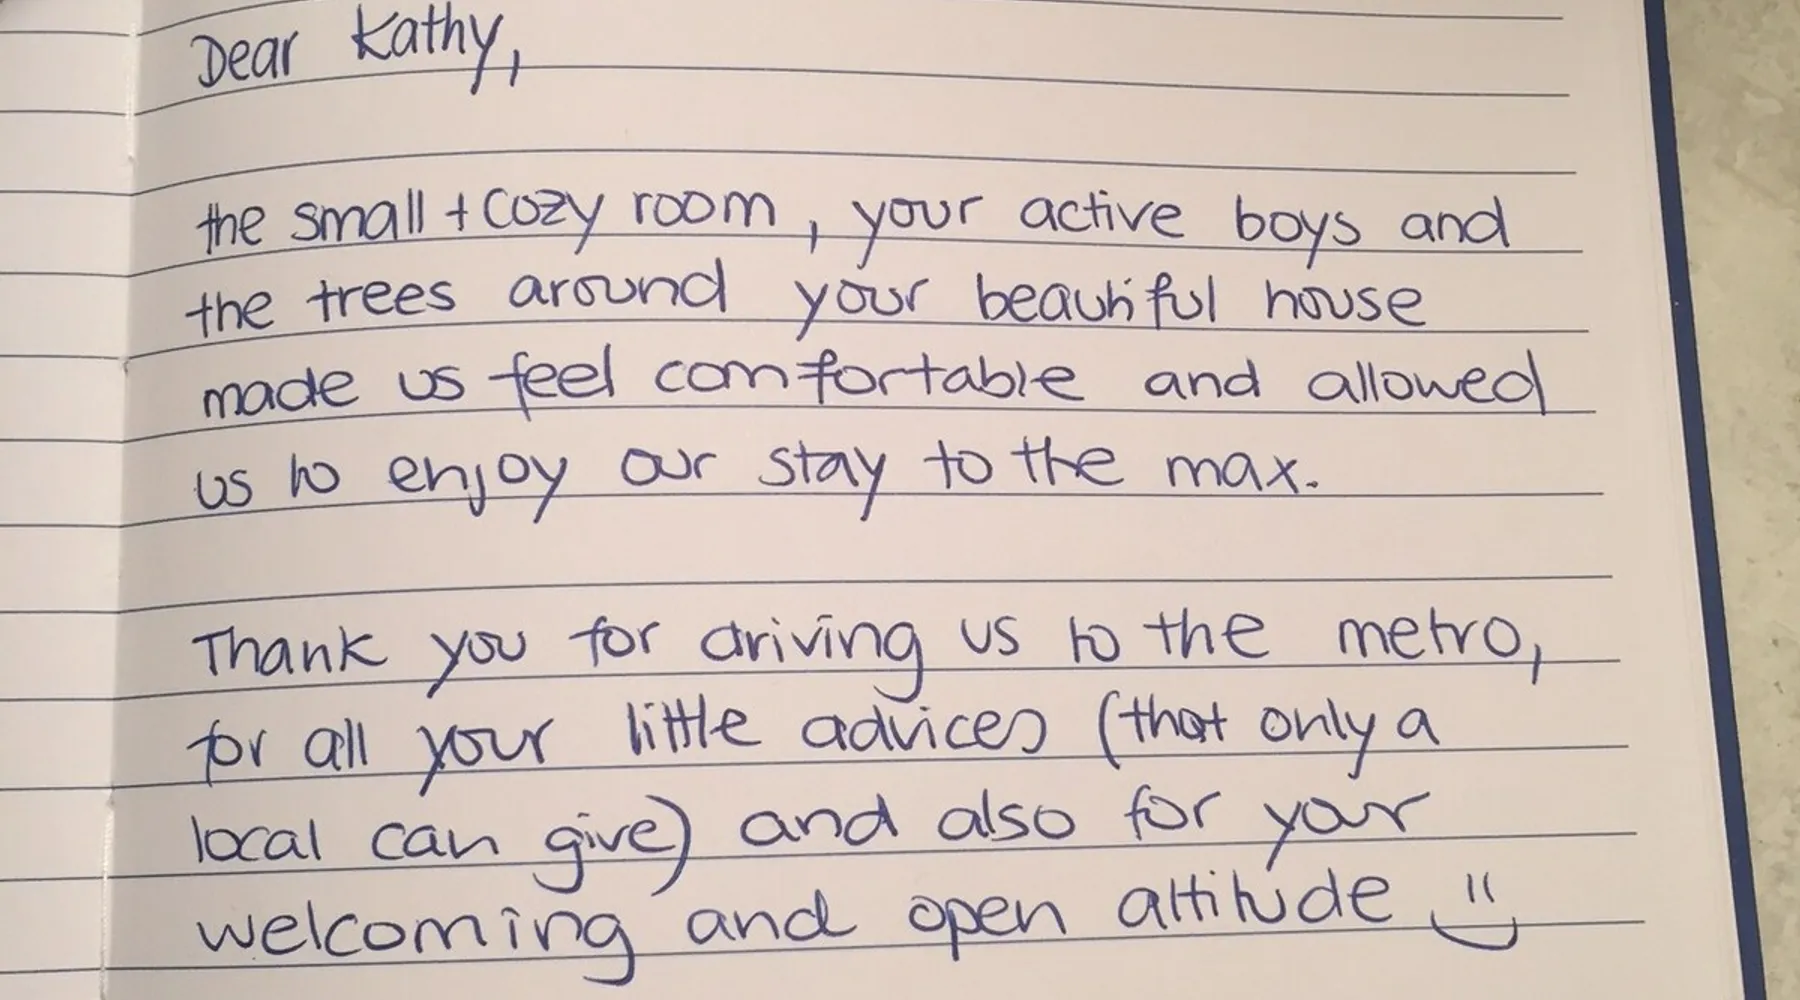 Dear Kathy,
the small + cozy room, your active boys and
the trees around your beautiful house
made us feel comfortable and allowed
us to enjoy our stay to the max.
Thank you for driving us to the metro,
for all your little advices (that only a
local can give) and also for your
welcoming and open attitude